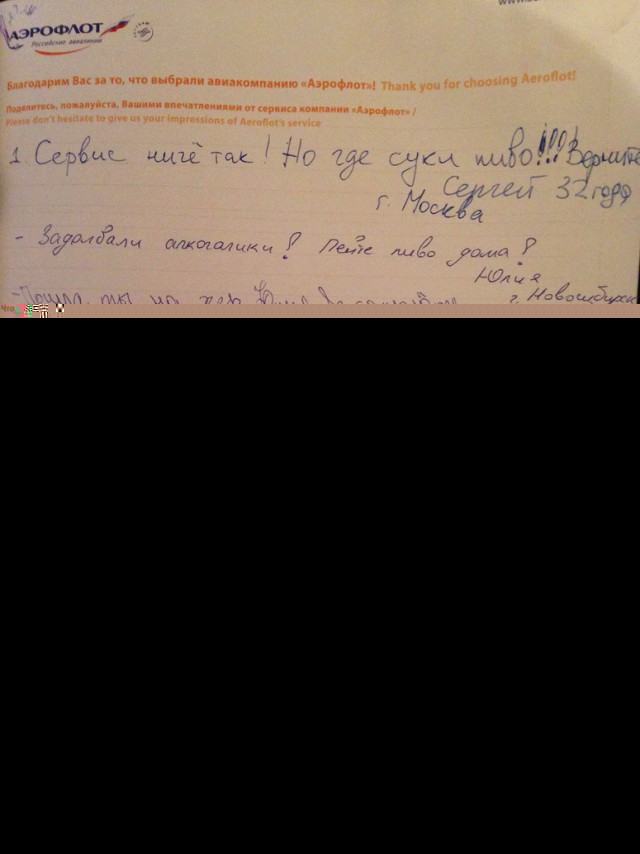 АЭРОФЛОТ
Российские авиалинии
Благодарим Вас за то, что выбрали авиакомпанию «Аэрофлот»! Thank you for choosing Aeroflot!
Поделитесь, пожалуйста, Вашими впечатлениями от сервиса компании «Аэрофлот» /
Please don't hesitate to give us your impressions of Aeroflot's service
1. Сервис ничё так! Но где суки пиво!!!! Верните
Сергей 32 года
г. Москва
- Задолбали алкоголики! Пейте пиво дома!
Юлия
г. Новосибирск
- Пошла ты на хер Юля
Что